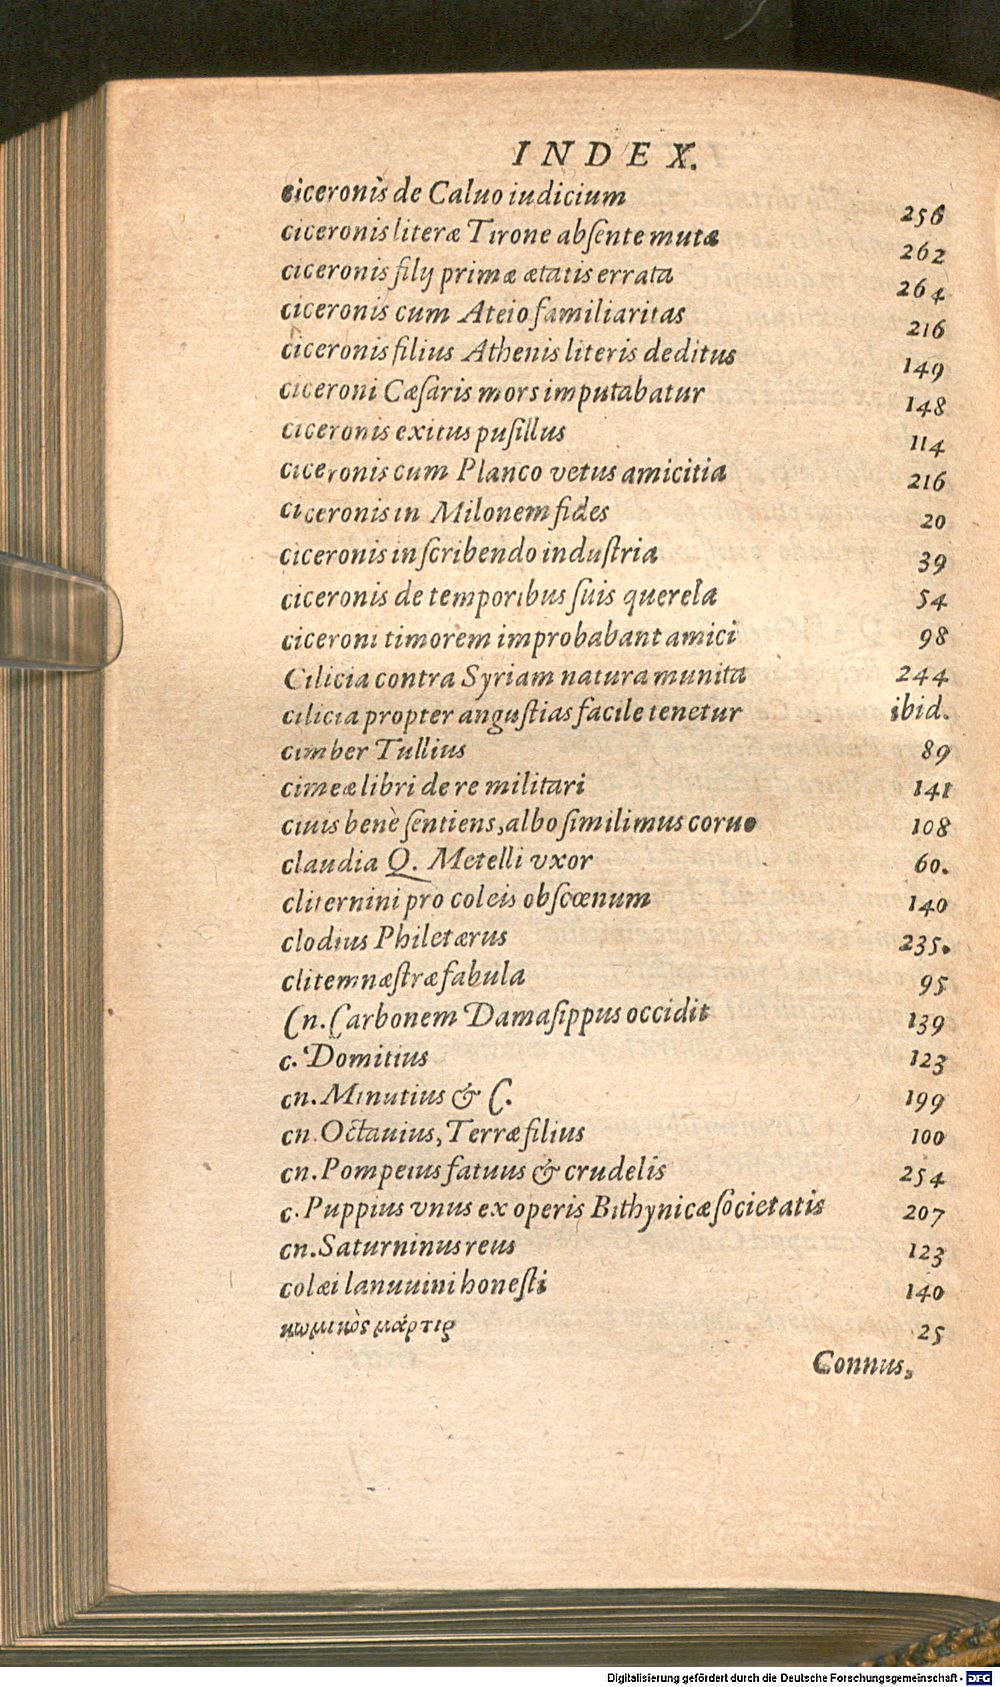 INDEX.
ciceronis de Caluo iudicium 256
ciceronis literæ Tirone absente mutæ 262
ciceronis filij primæ ætatis errata 264
ciceronis cum Ateio familiaritas 216
ciceronis filius Athenis literis deditus 149
ciceroni Cæsaris mors imputabatur 148
ciceronis exitus pusillus 114
ciceronis cum Planco vetus amicitia 216
ciceronis in Milonem fides 20
ciceronis in scribendo industria 39
ciceronis de temporibus suis querela 54
ciceroni timorem improbabant amici 98
Cilicia contra Syriam natura munita 244
cilicia propter angustias facile tenetur ibid.
cimber Tullius 89
cimeæ libri de re militari 141
ciuis benè sentiens, albo similimus coruo 108
claudia Q. Metelli vxor 60.
cliternini pro coleis obscœnum 140
clodius Philetærus 235.
clitemnæstræ fabula 95
Cn. Carbonem Damasippus occidit 139
c. Domitius 123
cn. Minutius & C. 199
cn. Octauius, Terræ filius 100
cn. Pompeius fatuus & crudelis 254
c. Puppius vnus ex operis Bithynicæ societatis 207
cn. Saturninus reus 123
colæi lanuuini honesti 140
κωμικὸς μάρτις 25
Connus,
Digitalisierung gefördert durch die Deutsche Forschungsgemeinschaft - DFG